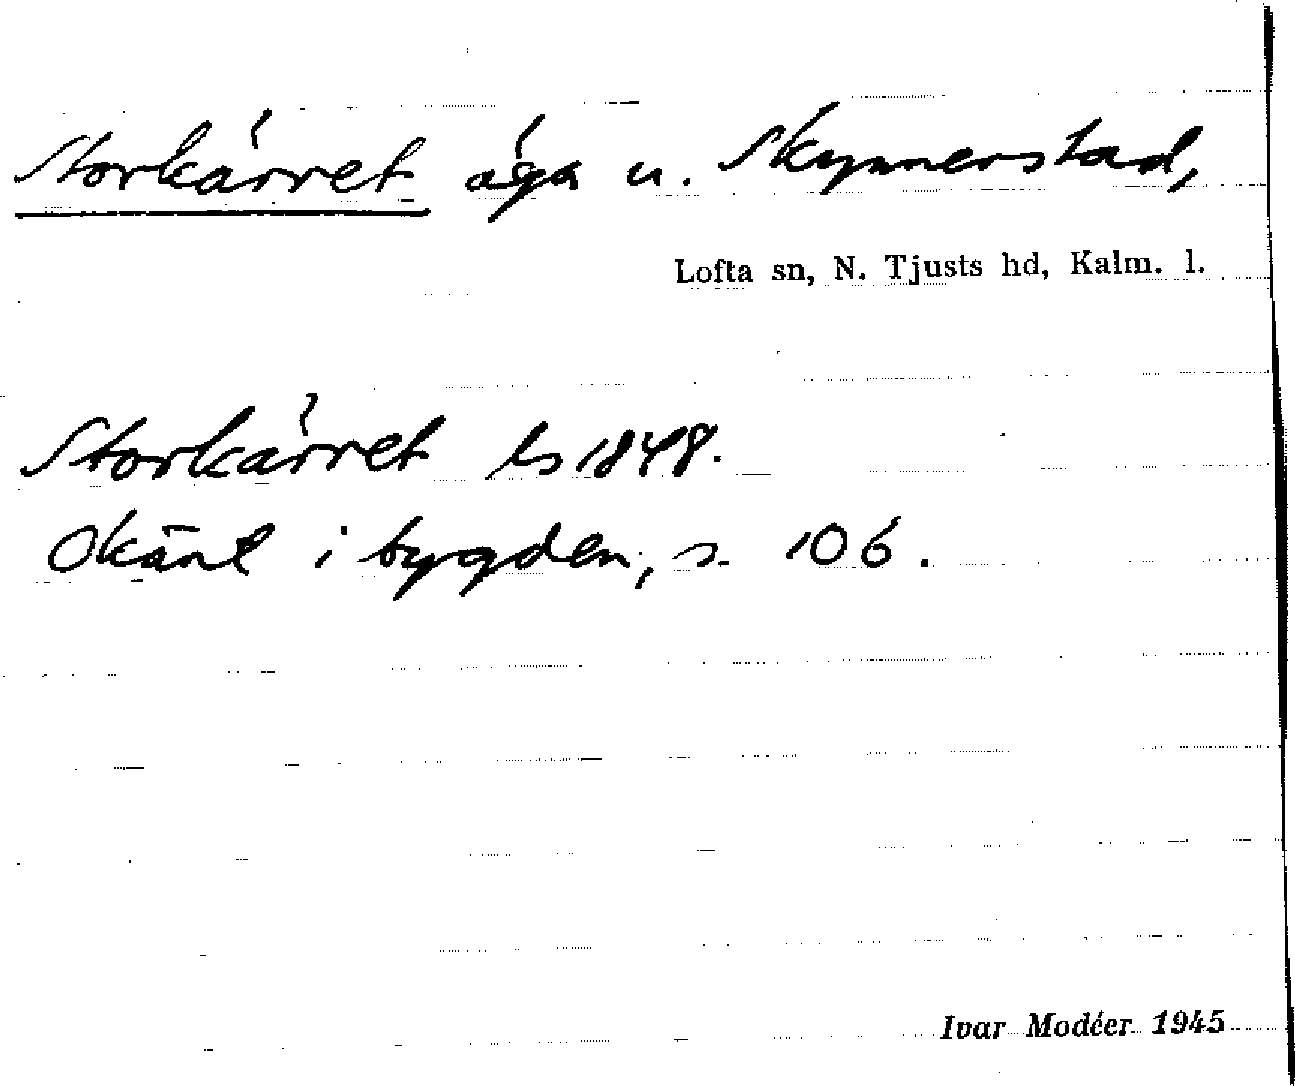 Storkärret äga u. Skymmerstad,
Lofta sn, N. Tjusts hd, Kalm. l.
Storkärret ls 1848.
Okänt i bygden, s. 106.
Ivar Modéer 1945